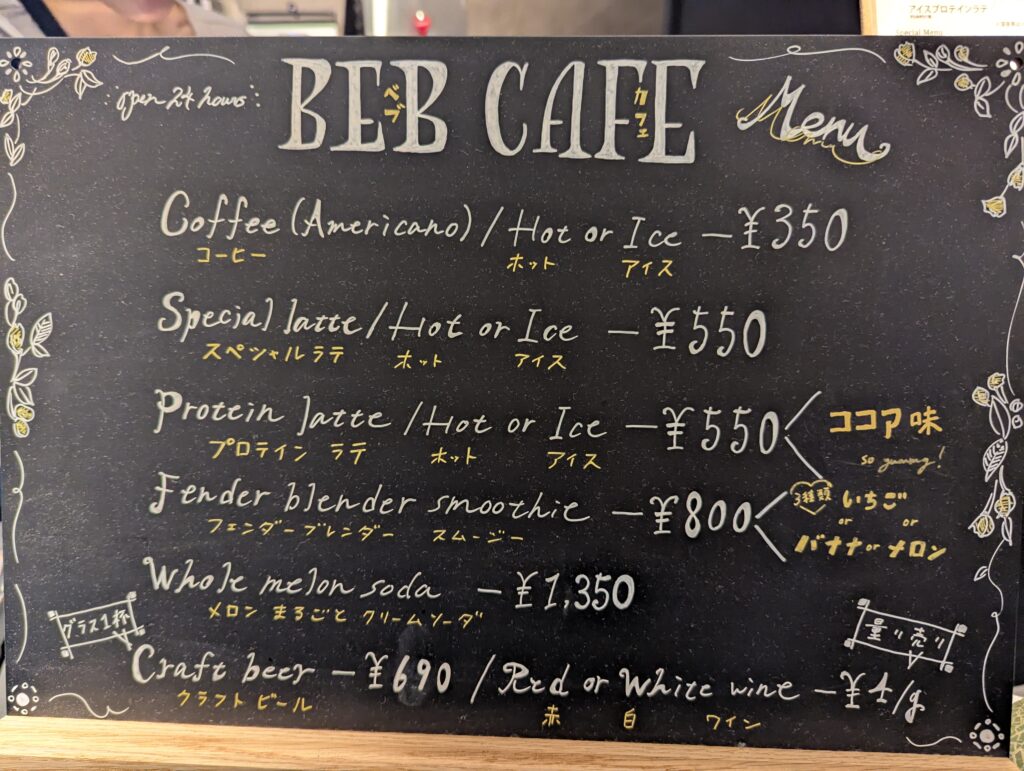 アイスプロテインラテ
Special Menu
open 24 hours
BEB CAFE
ベブ カフェ
Menu
Menu
Coffee (Americano) / Hot or Ice — ¥350
コーヒー ホット アイス
Special latte / Hot or Ice — ¥550
スペシャルラテ ホット アイス
Protein latte / Hot or Ice — ¥550
プロテイン ラテ ホット アイス
ココア味
so yummy!
Fender blender smoothie — ¥800
フェンダーブレンダー スムージー
3種類 いちご
or or
バナナ or メロン
Whole melon soda — ¥1,350
メロン まるごと クリームソーダ
グラス1杯
量り売り
Craft beer — ¥690 / Red or White wine — ¥4/g
クラフトビール 赤 白 ワイン